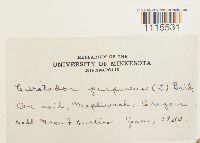 1115531
HERBARIUM OF THE
UNIVERSITY OF MINNESOTA
MINNEAPOLIS
Ceratodon purpureus (L) Brid.
On soil, Maplewood, Oregon.
Coll. Mrs. F. Jan, 1900.